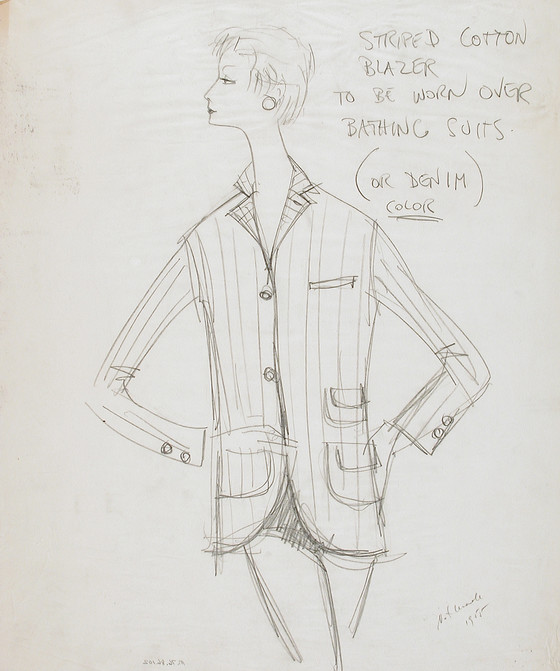 STRIPED COTTON
BLAZER
TO BE WORN OVER
BATHING SUITS.
(OR DENIM)
COLOR